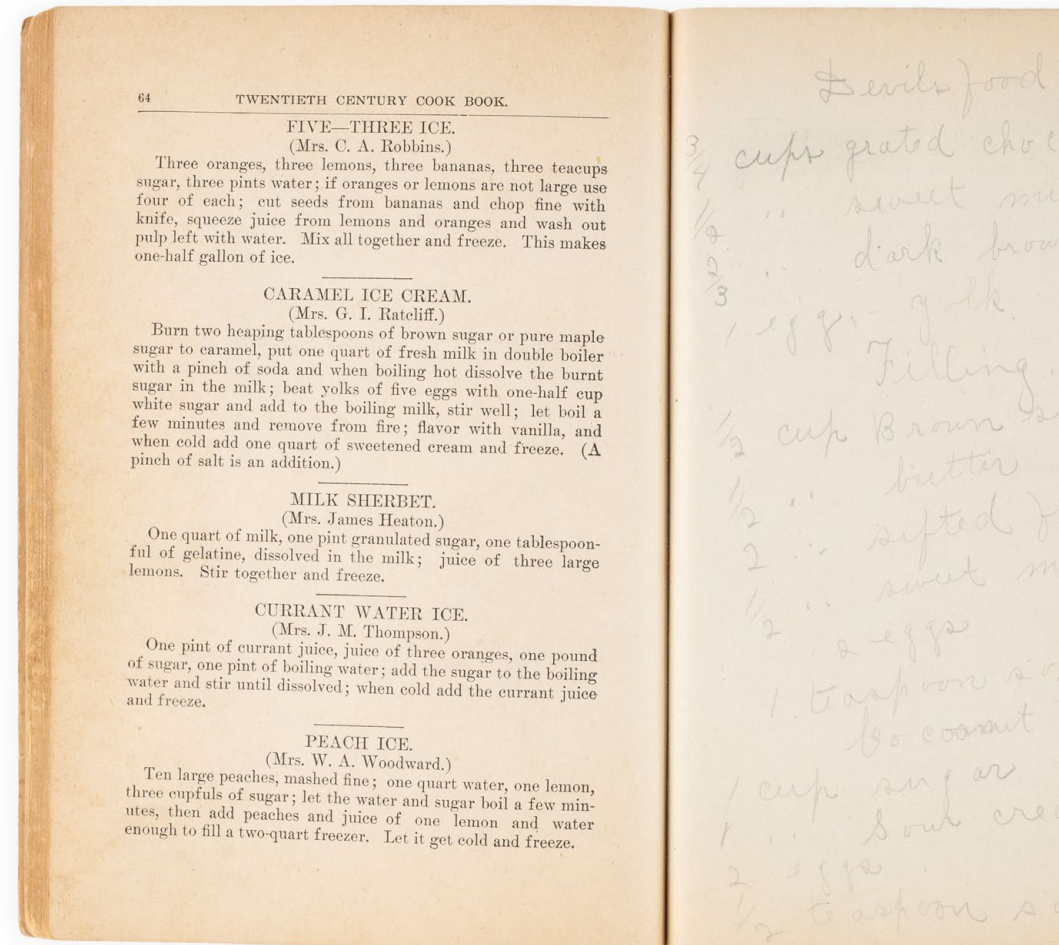 64 TWENTIETH CENTURY COOK BOOK.
FIVE—THREE ICE.
(Mrs. C. A. Robbins.)
Three oranges, three lemons, three bananas, three teacups
sugar, three pints water; if oranges or lemons are not large use
four of each; cut seeds from bananas and chop fine with
knife, squeeze juice from lemons and oranges and wash out
pulp left with water. Mix all together and freeze. This makes
one-half gallon of ice.
CARAMEL ICE CREAM.
(Mrs. G. I. Ratcliff.)
Burn two heaping tablespoons of brown sugar or pure maple
sugar to caramel, put one quart of fresh milk in double boiler
with a pinch of soda and when boiling hot dissolve the burnt
sugar in the milk; beat yolks of five eggs with one-half cup
white sugar and add to the boiling milk, stir well; let boil a
few minutes and remove from fire; flavor with vanilla, and
when cold add one quart of sweetened cream and freeze. (A
pinch of salt is an addition.)
MILK SHERBET.
(Mrs. James Heaton.)
One quart of milk, one pint granulated sugar, one tablespoon-
ful of gelatine, dissolved in the milk; juice of three large
lemons. Stir together and freeze.
CURRANT WATER ICE.
(Mrs. J. M. Thompson.)
One pint of currant juice, juice of three oranges, one pound
of sugar, one pint of boiling water; add the sugar to the boiling
water and stir until dissolved; when cold add the currant juice
and freeze.
PEACH ICE.
(Mrs. W. A. Woodward.)
Ten large peaches, mashed fine; one quart water, one lemon,
three cupfuls of sugar; let the water and sugar boil a few min-
utes, then add peaches and juice of one lemon and water
enough to fill a two-quart freezer. Let it get cold and freeze.
Devils food
3/4 cups grated choc
1/2 " sweet mi
2/3 " dark brow
1 egg yolk
Filling
1/2 cup Brown s
1/2 " butter
2 " sifted f
1/2 " sweet m
2 eggs
1 teaspoon so
coanut
1 cup sugar
1 " Sour crea
2 eggs
1/2 teaspoon s